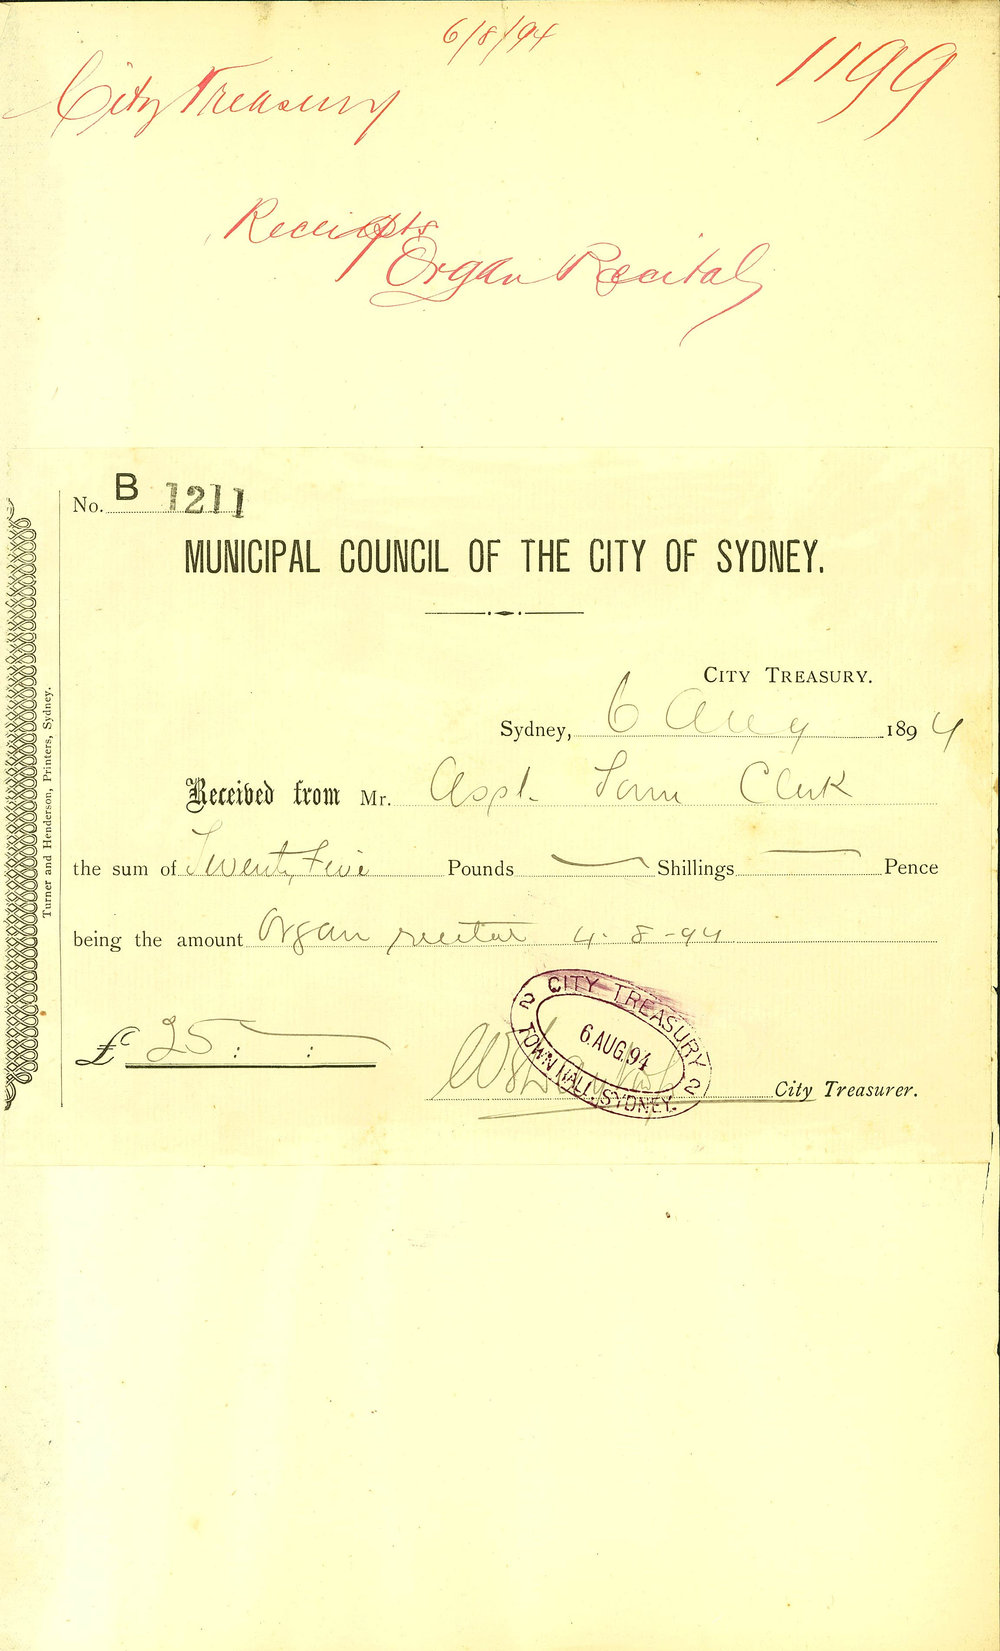 6/8/94
City Treasury
1199
Receipts
Organ Recital
No. B 1211
MUNICIPAL COUNCIL OF THE CITY OF SYDNEY.
CITY TREASURY.
Sydney, 6 Aug 1894
Received from Mr. Town Clerk
the sum of Twenty Five Pounds — Shillings — Pence
being the amount Organ recital 4-8-94
£ 25 : :
City Treasurer.
2 CITY TREASURY 2
6.AUG.94
TOWN HALL, SYDNEY.
Turner and Henderson, Printers, Sydney.